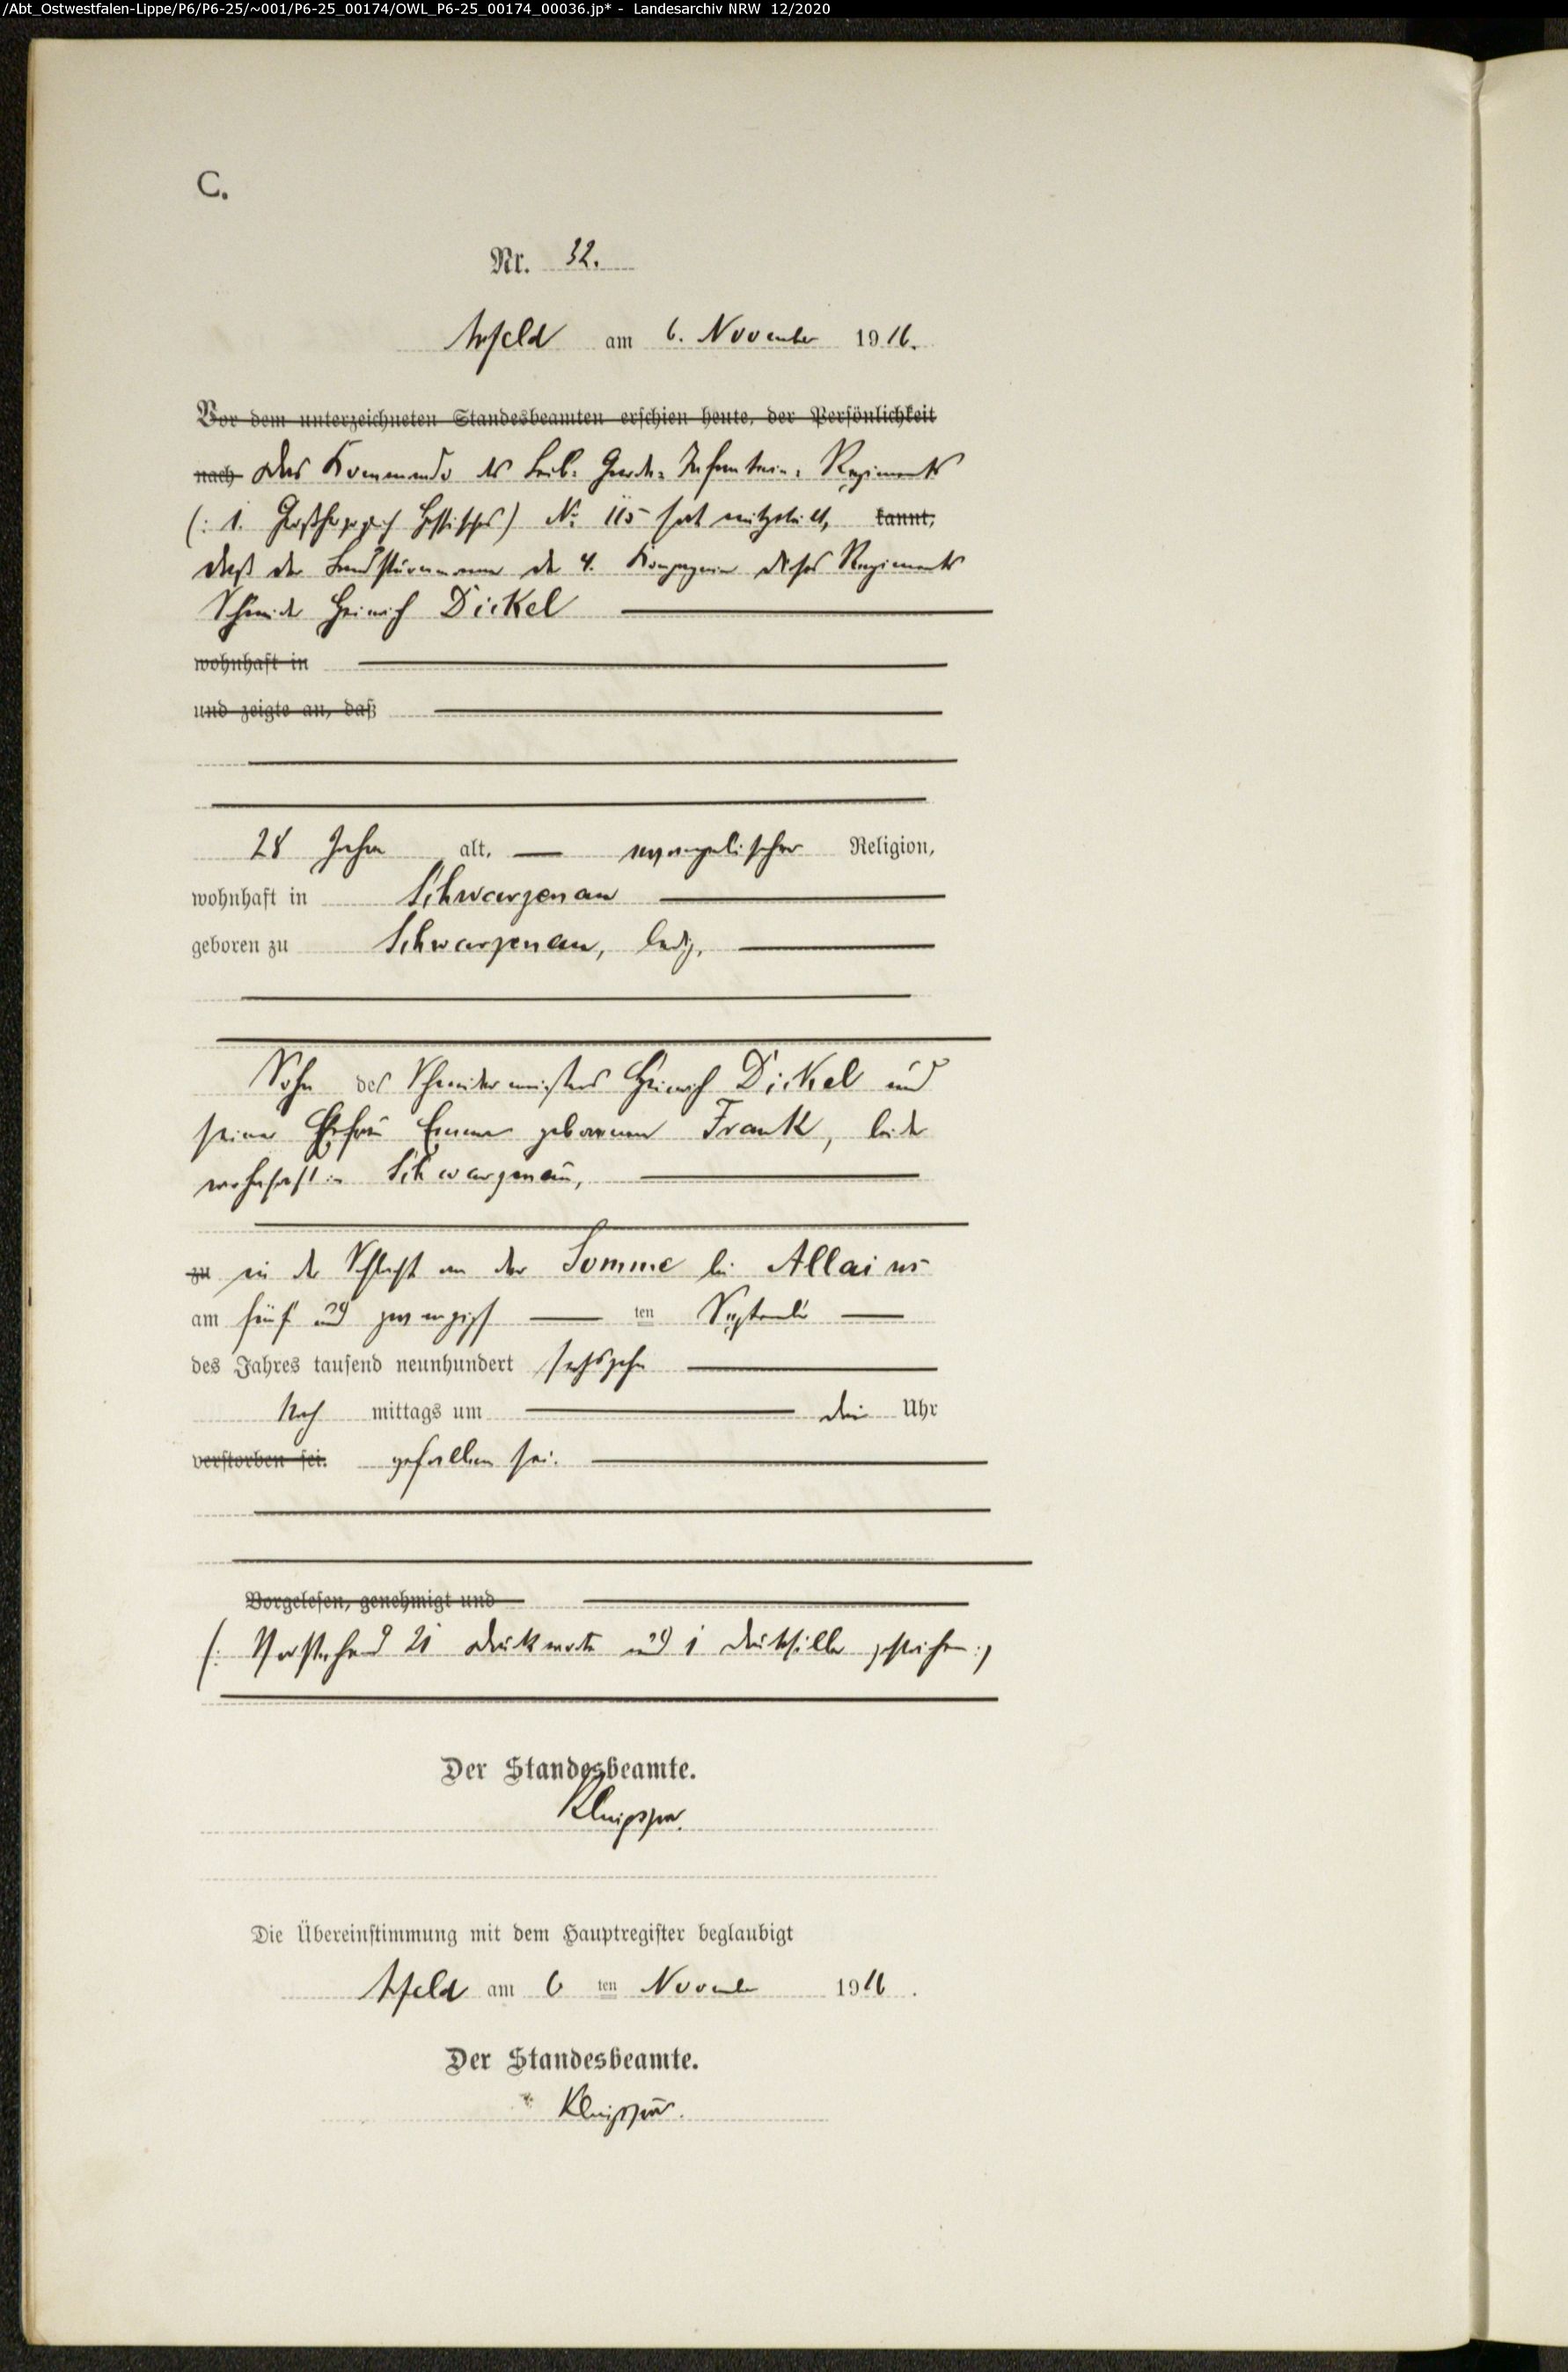 /Abt_Ostwestfalen-Lippe/P6/P6-25/~001/P6-25_00174/OWL_P6-25_00174_00036.jp* - Landesarchiv NRW 12/2020
C.
Nr. 32.
Arfeld am 6. November 1916.
Vor dem unterzeichneten Standesbeamten erschien heute, der Persönlichkeit
nach Das Kommando des Leib-Garde-Infanterie-Regiments
(: 1. Großherzoglich Hessisches) No 115 hat mitgeteilt, kannt,
daß der Landsturmmann der 4. Kompagnie dieses Regiments
Schneider Heinrich Dickel
wohnhaft in
und zeigte an, daß
28 Jahre alt, evangelischer Religion,
wohnhaft in Schwarzenau
geboren zu Schwarzenau, ledig,
Sohn des Schneidermeisters Heinrich Dickel und
seiner Ehefrau Emma geborenen Frank, beide
wohnhaft in Schwarzenau,
zu in der Schlacht an der Somme bei Allaines
am fünf und zwanzigsten September
des Jahres tausend neunhundert sechszehn
Nach mittags um drei Uhr
verstorben sei. gefallen sei.
Vorgelesen, genehmigt und
(: Vorstehend 21 Druckworte und 1 Drucksilbe gestrichen :)
Der Standesbeamte.
Die Übereinstimmung mit dem Hauptregister beglaubigt
Arfeld am 6 ten November 1916.
Der Standesbeamte.